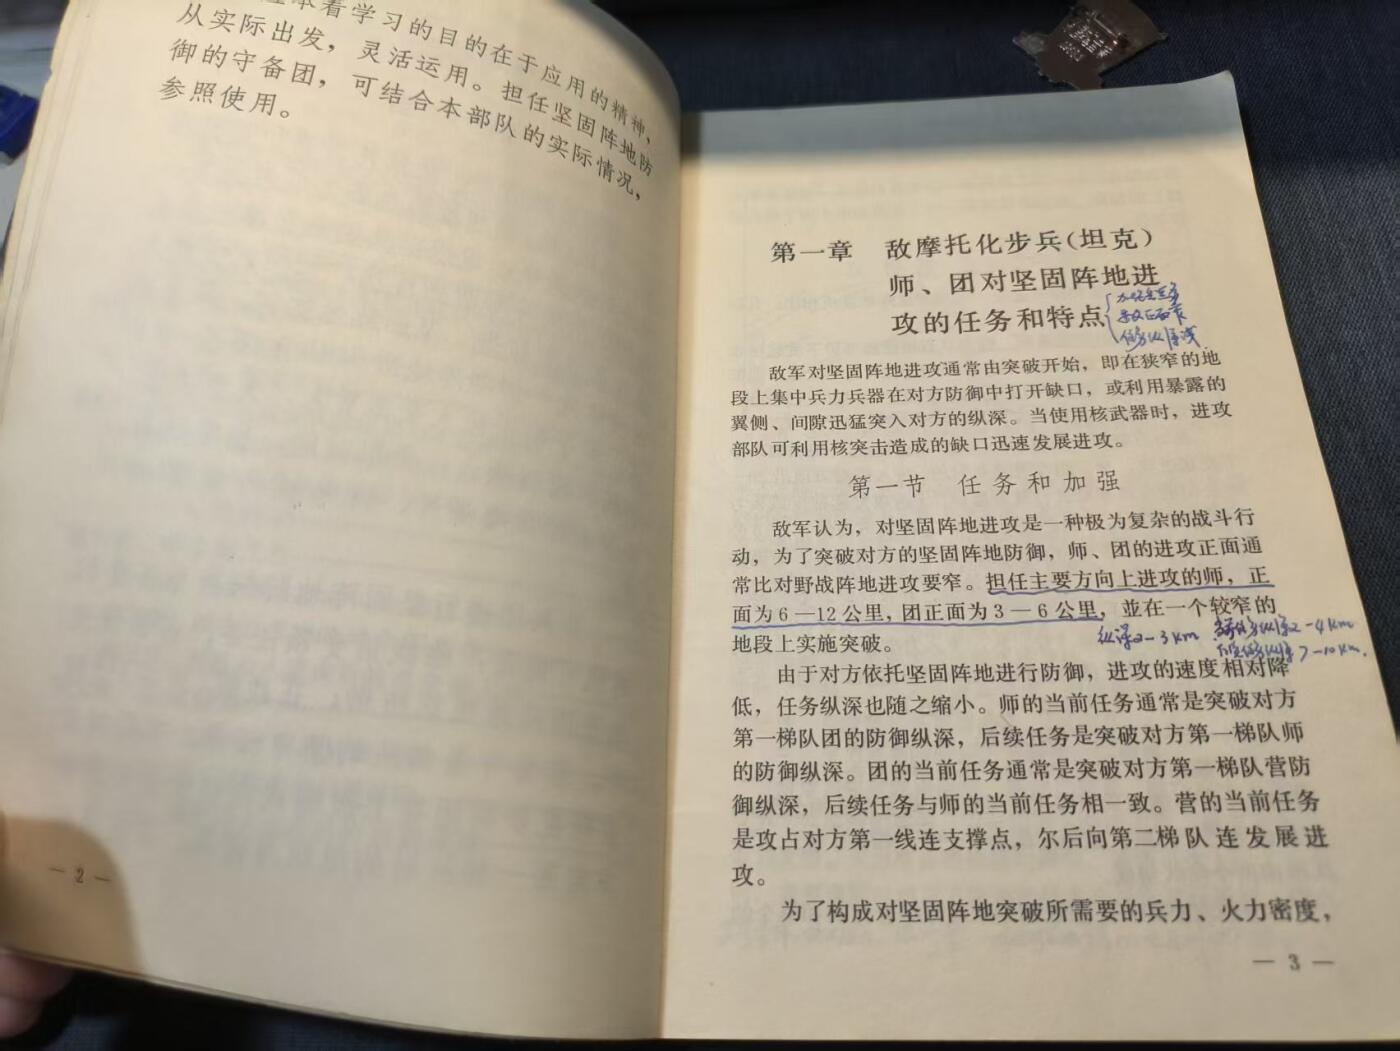 本着学习的目的在于应用的精神、
从实际出发，灵活运用。担任坚固阵地防
御的守备团，可结合本部队的实际情况，
参照使用。
— 2 —
第一章 敌摩托化步兵（坦克）
师、团对坚固阵地进
攻的任务和特点
任务纵深浅
敌军对坚固阵地进攻通常由突破开始，即在狭窄的地
段上集中兵力兵器在对方防御中打开缺口，或利用暴露的
翼侧、间隙迅猛突入对方的纵深。当使用核武器时，进攻
部队可利用核突击造成的缺口迅速发展进攻。
第一节 任务和加强
敌军认为，对坚固阵地进攻是一种极为复杂的战斗行
动，为了突破对方的坚固阵地防御，师、团的进攻正面通
常比对野战阵地进攻要窄。担任主要方向上进攻的师，正
面为6—12公里，团正面为3—6公里，並在一个较窄的
地段上实施突破。
纵深2-3km
当前任务纵深2-4km
后续任务纵深7-10km.
由于对方依托坚固阵地进行防御，进攻的速度相对降
低，任务纵深也随之缩小。师的当前任务通常是突破对方
第一梯队团的防御纵深，后续任务是突破对方第一梯队师
的防御纵深。团的当前任务通常是突破对方第一梯队营防
御纵深，后续任务与师的当前任务相一致。营的当前任务
是攻占对方第一线连支撑点，尔后向第二梯队连发展进
攻。
为了构成对坚固阵地突破所需要的兵力、火力密度，
— 3 —